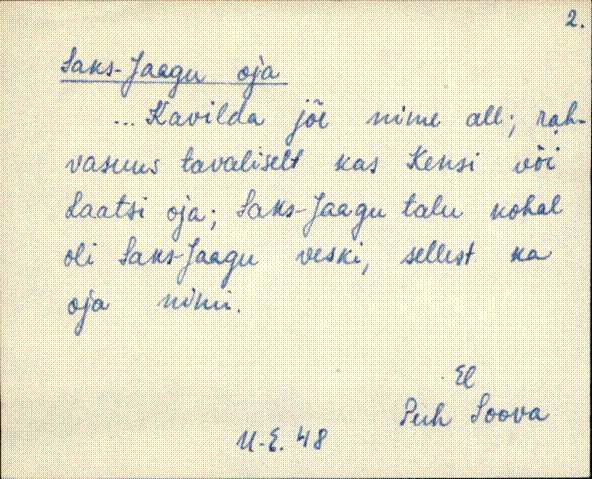 2.
Saks-Jaagu oja
... Kavilda jõe nime all; rah-
vasuus tavaliselt kas Kensi või
Laatsi oja; Saks-Jaagu talu kohal
oli Saks-Jaagu veski, sellest ka
oja nimi.
El
Puh Soova
U-E. 48